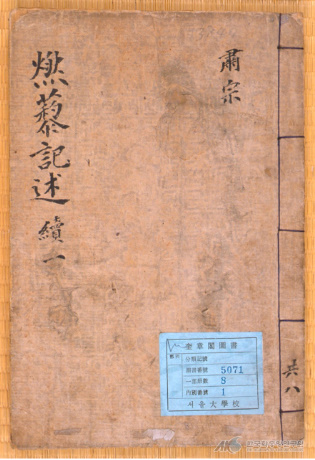 燃藜記述 續一
肅宗
共八
奎章閣圖書
分類記號
圖書番號 5071
一連冊數 8
內譯番號 1
서울大學校